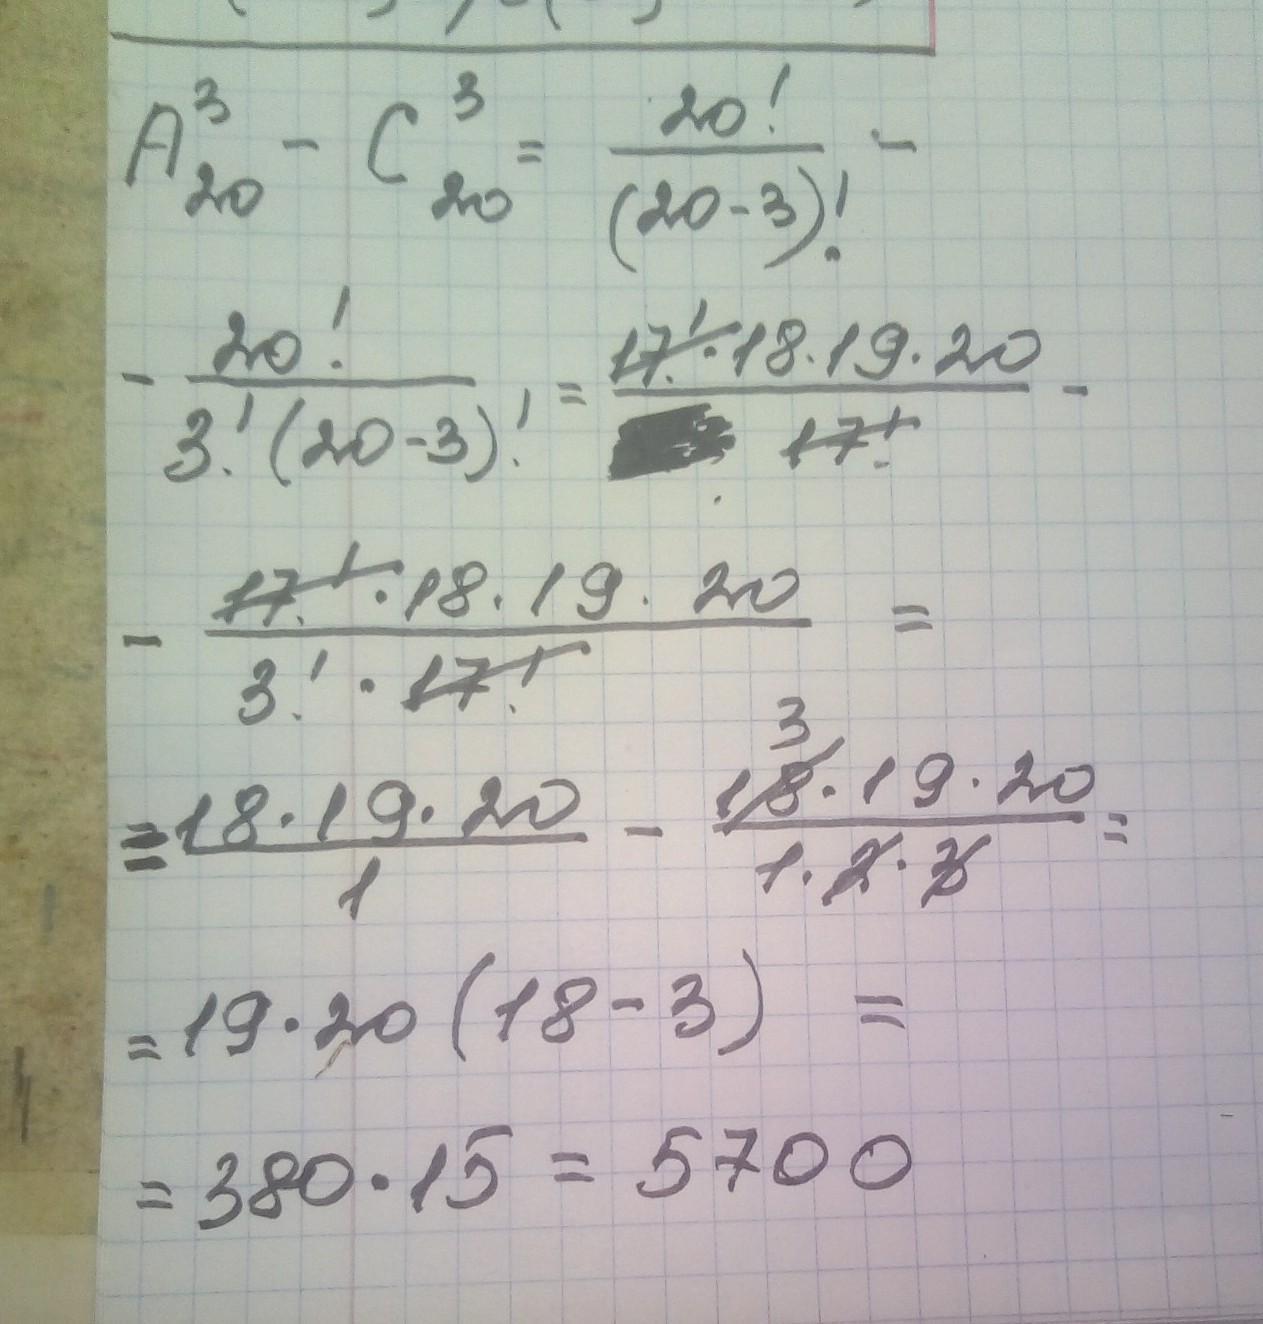 A³₂₀ - C³₂₀ = 20! / (20-3)! -
- 20! / 3! (20-3)! = 17! · 18 · 19 · 20 / 17! -
- 17! · 18 · 19 · 20 / 3! · 17! =
= 18 · 19 · 20 / 1 - 3 18 · 19 · 20 / 1 · 2 · 3 =
= 19 · 20 (18 - 3) =
= 380 · 15 = 5700